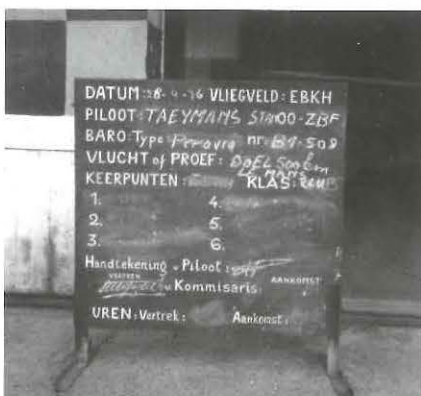 DATUM: 28-4-76 VLIEGVELD: EBKH
PILOOT: TAEYMANS STAN OO-ZBF
BARO-Type Peravia nr: B1-509
VLUCHT of PROEF: DOEL 500km
LE MANS
KEERPUNTEN: KLAS: CLUB
1. 4.
2. 5.
3. 6.
Handtekening - Piloot:
VERTREK AANKOMST
Kommisaris:
UREN: Vertrek: Aankomst: